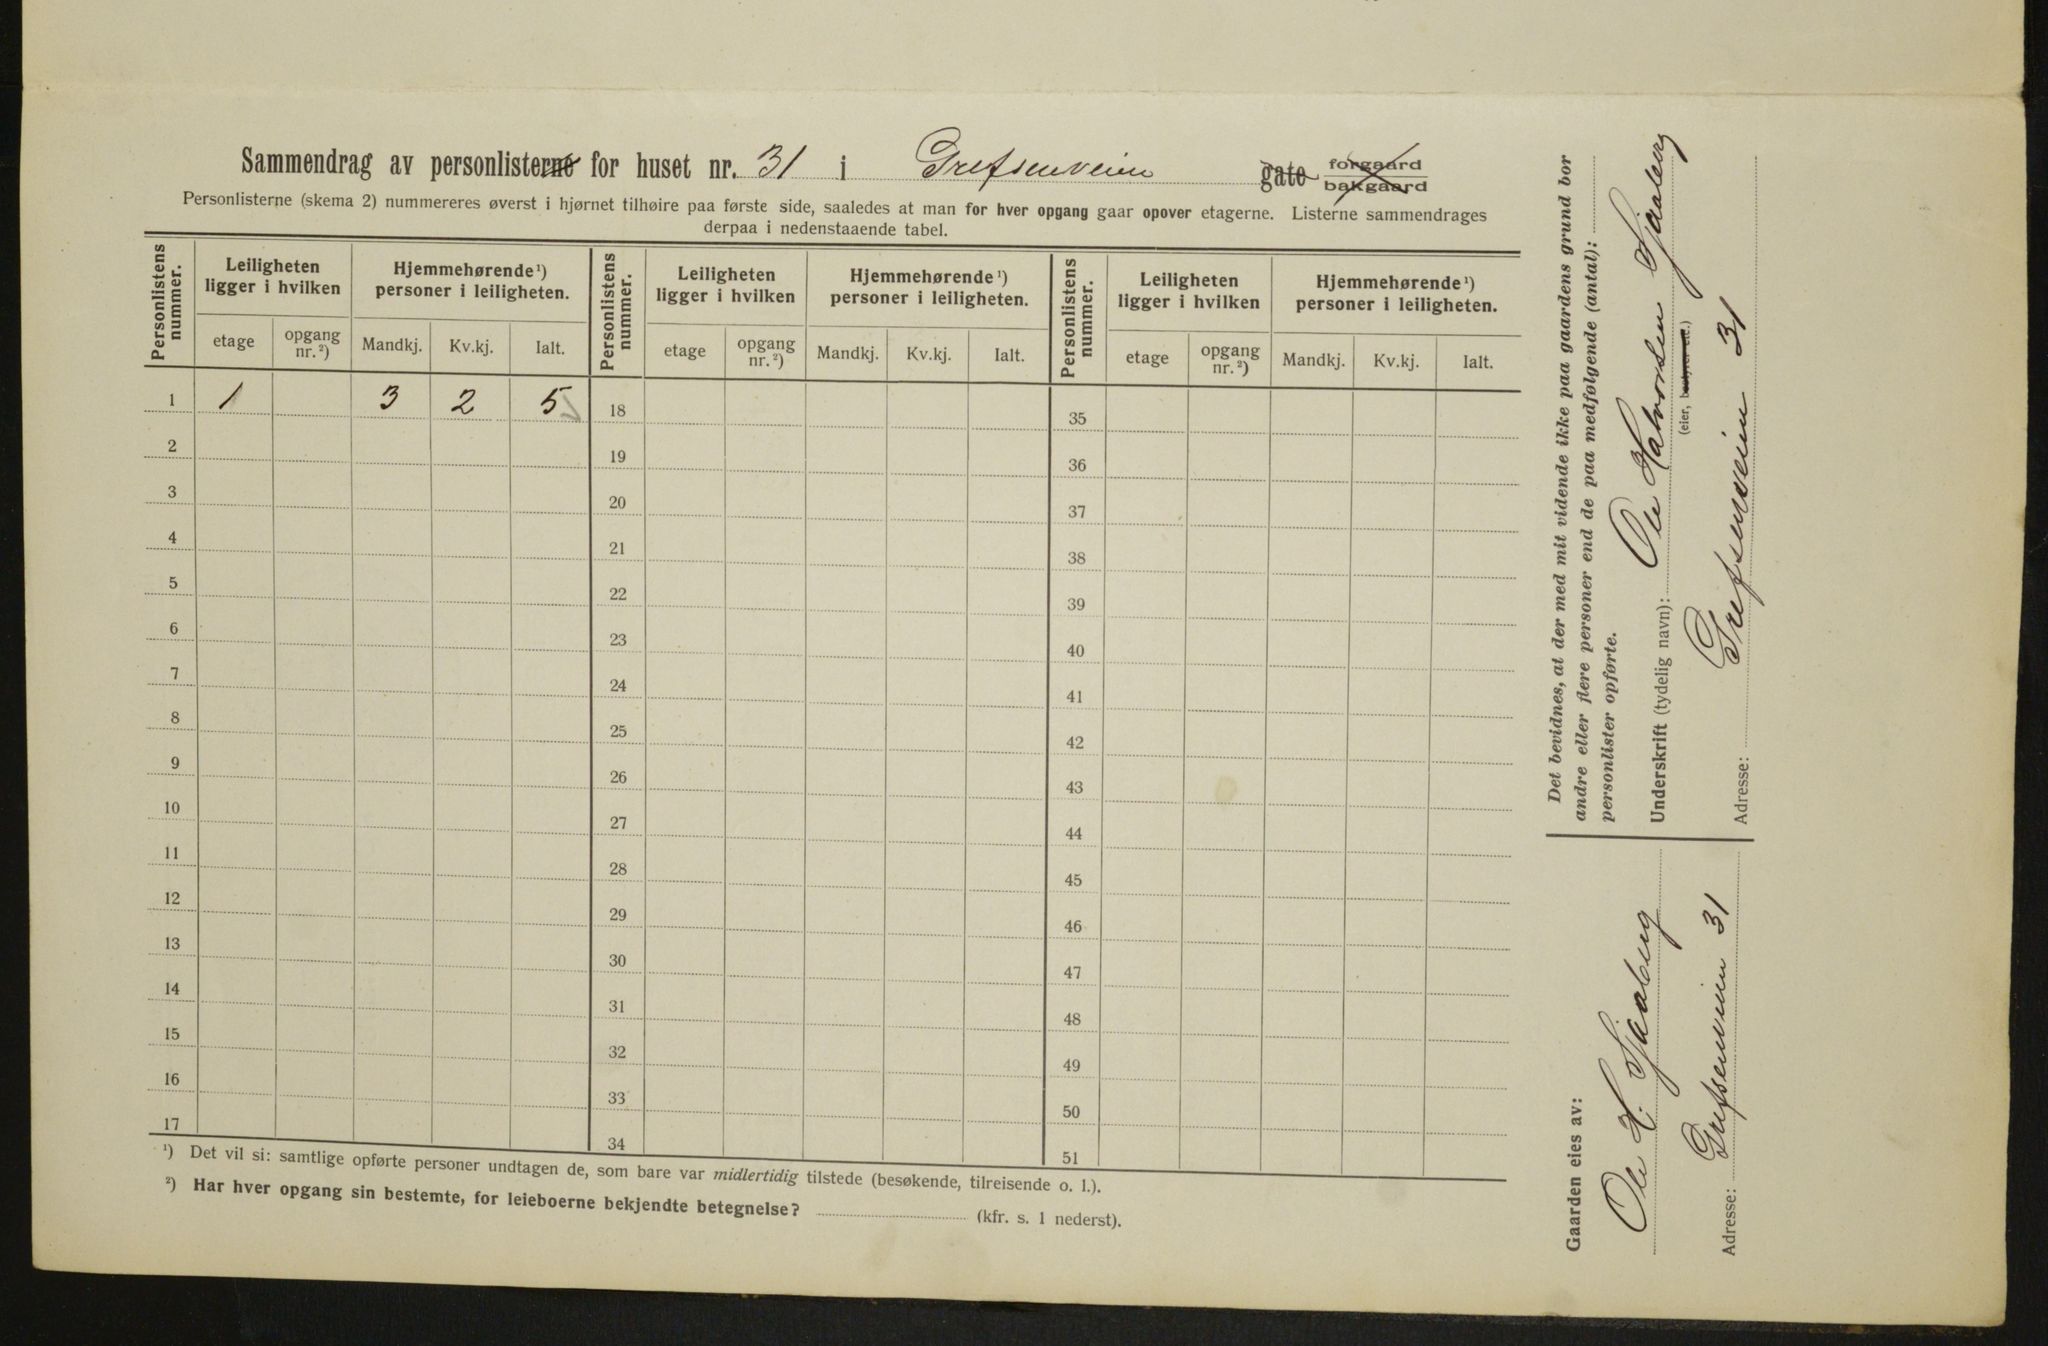 Sammendrag av personlisterne for huset nr. 31 i Grefsenveien gate forgaard bakgaard
Personlisterne (skema 2) nummereres øverst i hjørnet tilhøire paa første side, saaledes at man for hver opgang gaar opover etagerne. Listerne sammendrages
derpaa i nedenstaaende tabel.
Personlistens nummer. Leiligheten ligger i hvilken Hjemmehørende ¹) personer i leiligheten. Personlistens nummer. Leiligheten ligger i hvilken Hjemmehørende ¹) personer i leiligheten. Personlistens nummer. Leiligheten ligger i hvilken Hjemmehørende ¹) personer i leiligheten.
etage opgang nr. ²) Mandkj. Kv.kj. Ialt. etage opgang nr. ²) Mandkj. Kv.kj. Ialt. etage opgang nr. ²) Mandkj. Kv.kj. Ialt.
1 1 3 2 5 18 35
2 19 36
3 20 37
4 21 38
5 22 39
6 23 40
7 24 41
8 25 42
9 26 43
10 27 44
11 28 45
12 29 46
13 30 47
14 31 48
15 32 49
16 33 50
17 34 51
¹) Det vil si: samtlige opførte personer undtagen de, som bare var midlertidig tilstede (besøkende, tilreisende o. l.).
²) Har hver opgang sin bestemte, for leieboerne bekjendte betegnelse? (kfr. s. 1 nederst).
Det bevidnes, at der med mit vidende ikke paa gaardens grund bor
andre eller flere personer end de paa medfølgende (antal):
personlister opførte.
Underskrift (tydelig navn): Ole Halvorsen Sjaaberg
(eier, bestyrer etc.)
Adresse: Grefsenveien 31
Gaarden eies av:
Ole H. Sjaaberg
Adresse: Grefsenveien 31